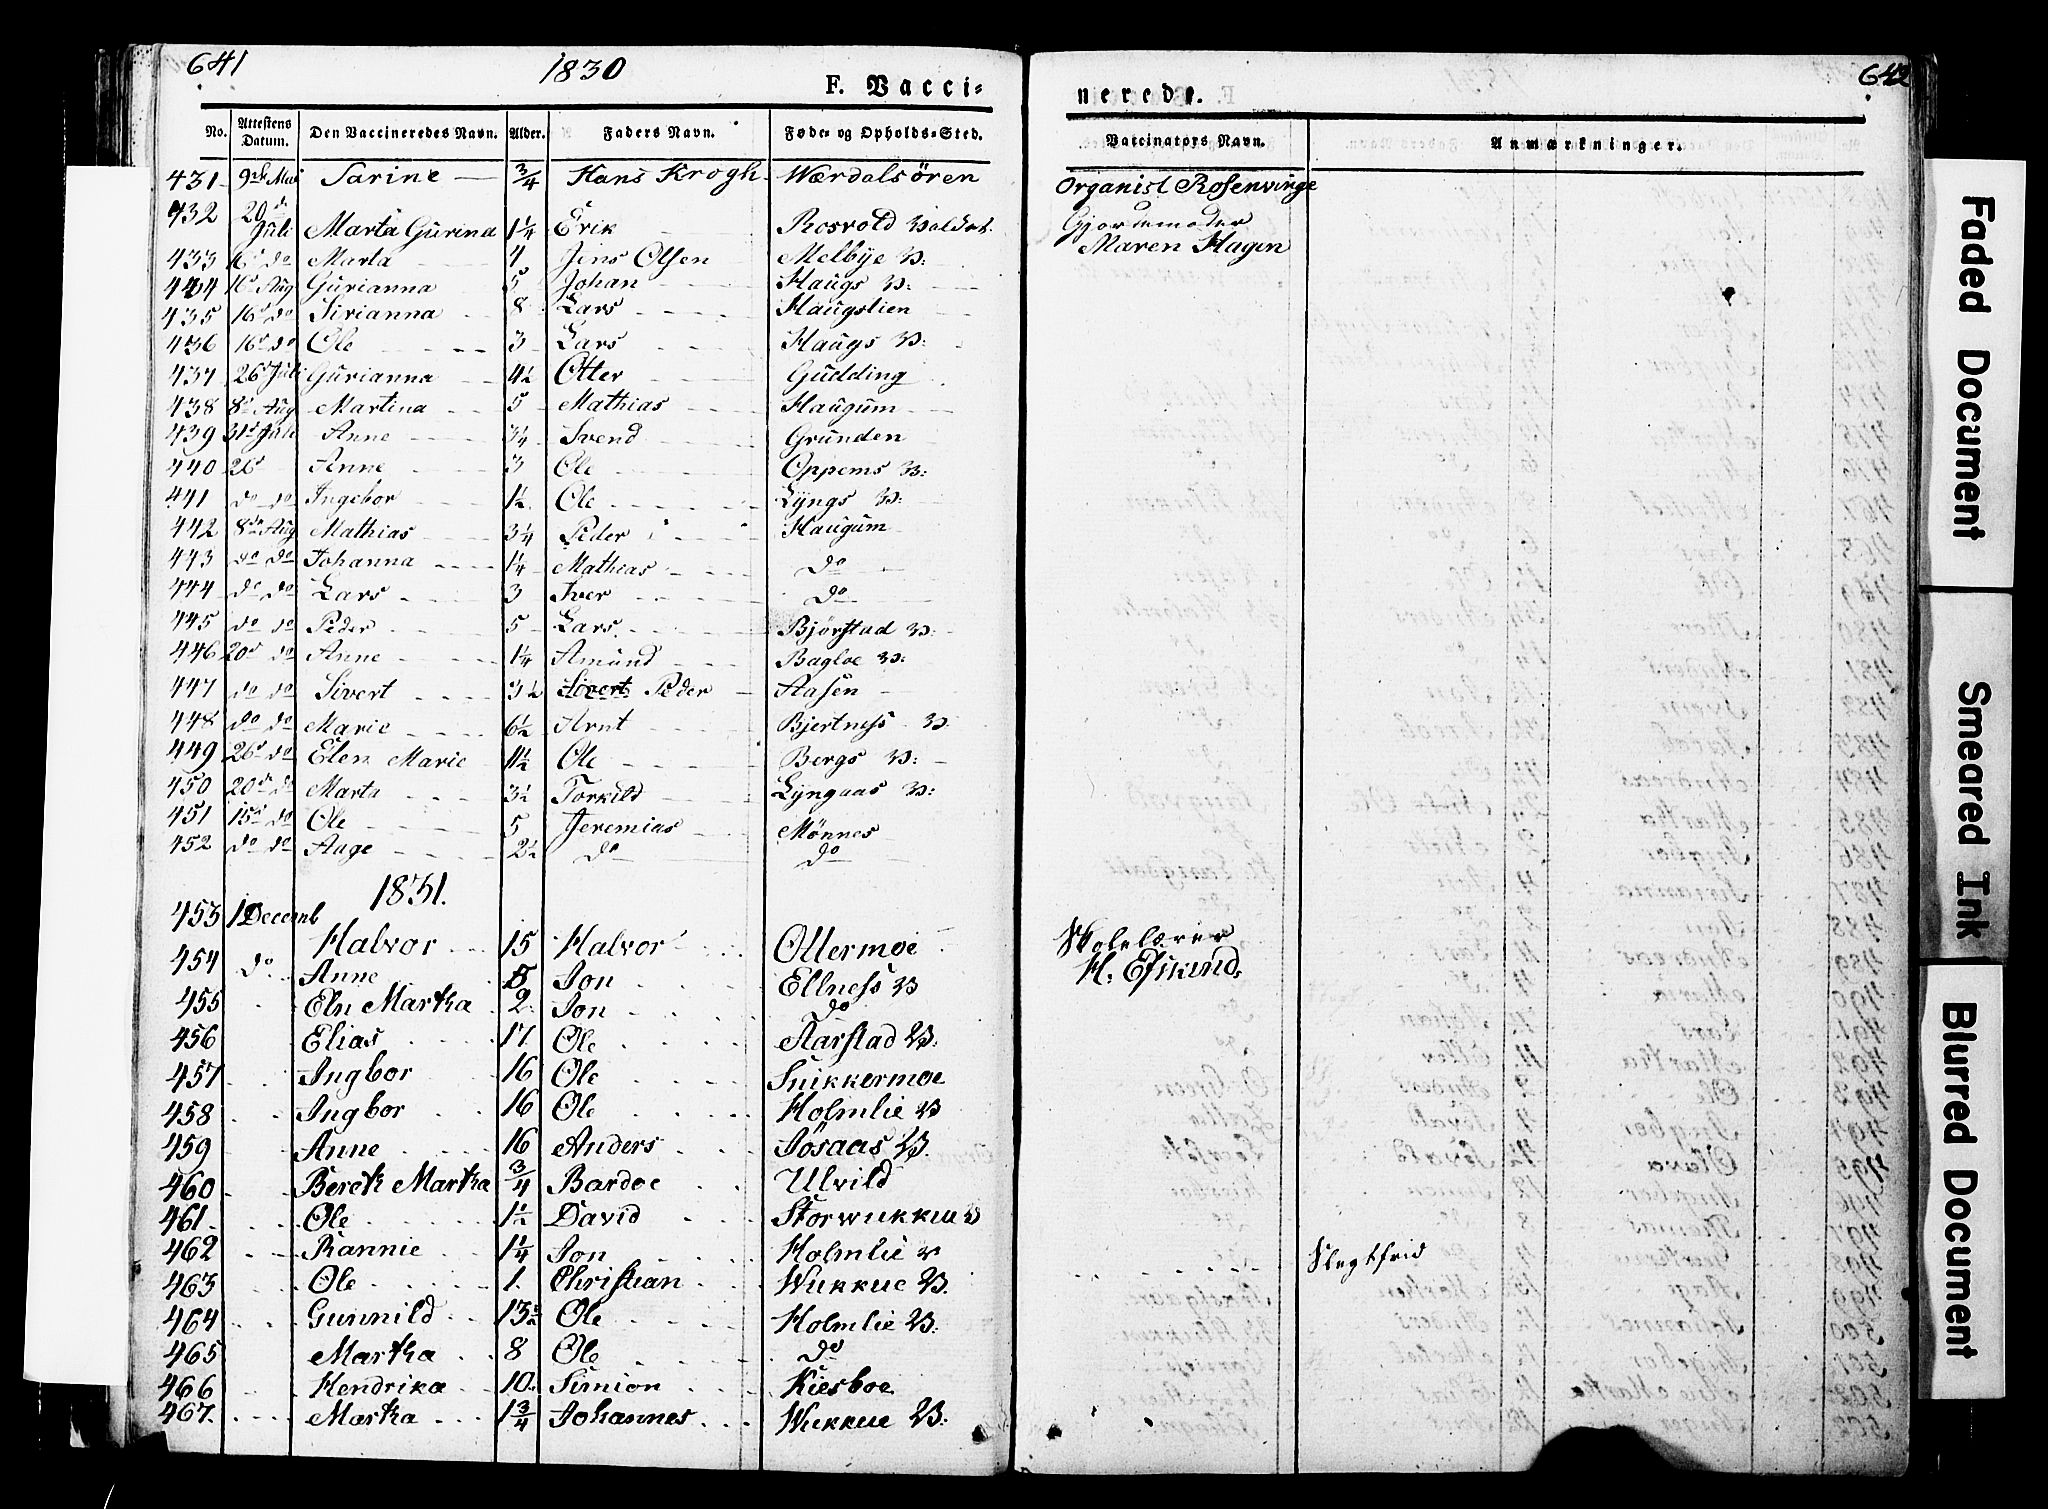 641
1830
642
F. Vacci=
nerede.
No. Attestens Datum. Den Vaccineredes Navn. Alder. Faders Navn. Føde- og Opholds-Sted. Vaccinators Navn. Anmærkninger.
431 9de Mai Sarine 3/4 Hans Krogh Wærdalsören Organist Rosenvinge
432 20de Juli Marta Gurina 1 1/4 Erik Rosvold Gjordemoder
433 16d do Marta 4 Jens Olsen Melbye W: Maren Hagen
434 16d Aug Gurianna 5 Johan Haugs W:
435 16d do Sirianna 8 Lars Haugslien
436 16d do Ole 3 Lars Haugs W:
437 26d Juli Gurianna 4 1/2 Otter Gudding
438 8d Aug Martina 5 Mathias Haugum
439 31d Juli Anne 3/4 Svend Grunden
440 26d Anne 3 Ole Oppems W:
441 do do Ingebor 1 1/2 Ole Lyngs W:
442 8de Aug Mathias 3/4 Peder Haugum
443 do do Johanna 1/4 Mathias do
444 do do Lars 3 Iver do
445 do do Peder 5 Lars Bjørstad W:
446 20d do Anne 1 1/4 Amund Bagloe W:
447 do do Sivert 3 1/2 Sivert Peder Aasen
448 do do Marie 6 1/2 Arnt Bjertness W:
449 26d do Elen Marie 1 1/2 Ole Bergs W:
450 20de do Marta 3 1/2 Torkild Lyngaas W:
451 15d do Ole 5 Jeremias Mönnes
452 do do Aage 2 1/2 do do
1831.
453 1 Decemb Halvor 15 Halvor Ollermoe Skolelærer
454 do Anne 5 Jon Ellness W H. Eskund.
455 Eln Martha 2 Jon do
456 Elias 17 Ole Aarstad W:
457 Ingbor 16 Ole Snikkermoe
458 Ingbor 16 Ole Holmlie W
459 Anne 16 Anders Jösaas W.
460 Bereth Martha 3/4 Bardoe Ulvild
461 Ole 1 1/2 David Storwukkue W
462 Rannie 1 1/4 Jon Holmlie W
463 Ole 1 Christian Wukkue W. Slegtfrid
464 Gunnild 13 1/2 Ole Holmlie W:
465 Martha 8 Ole do
466 Hendrika 10 Simion Kiesboe
467 Martha 1 3/4 Johannes Wukkue W:
Faded Document
Smeared Ink
Blurred Document